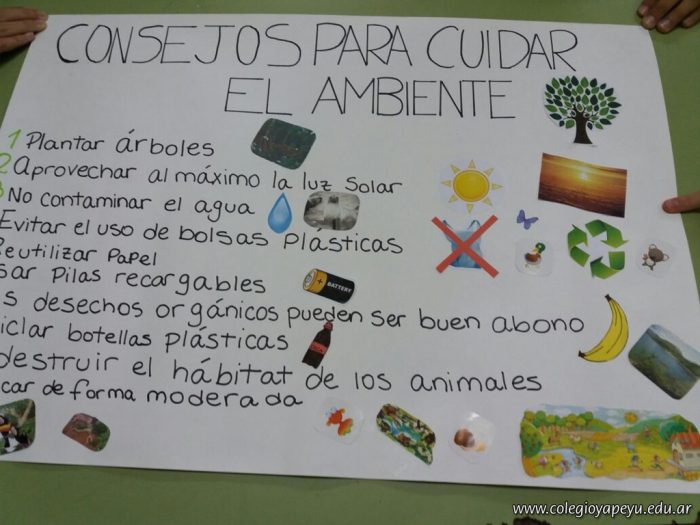 CONSEJOS PARA CUIDAR
EL AMBIENTE
1 Plantar árboles
2 Aprovechar al máximo la luz solar
3 No contaminar el agua
Evitar el uso de bolsas plásticas
Reutilizar Papel
sar Pilas recargables
s desechos orgánicos pueden ser buen abono
iclar botellas plásticas
destruir el hábitat de los animales
car de forma moderada
BATTERY
www.colegioyapeyu.edu.ar